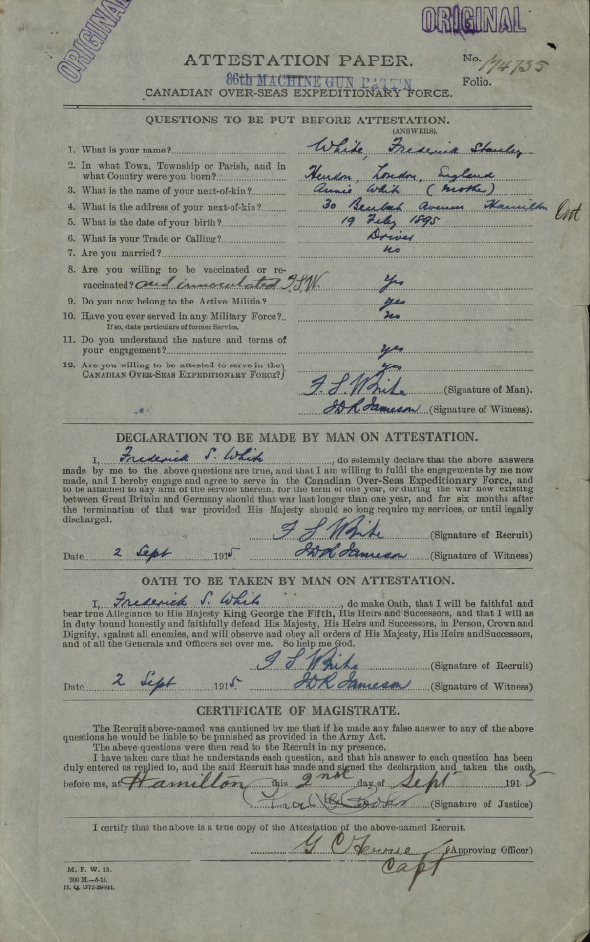 ORIGINAL
ORIGINAL
ATTESTATION PAPER.
No. 174735
86th MACHINE GUN BATT'N
Folio.
CANADIAN OVER-SEAS EXPEDITIONARY FORCE.
QUESTIONS TO BE PUT BEFORE ATTESTATION.
(ANSWERS).
1. What is your name? White, Frederick Stanley
2. In what Town, Township or Parish, and in
what Country were you born? Hendon, London, England
3. What is the name of your next-of-kin? Annie White (mother)
4. What is the address of your next-of-kin? 30 Avenue Hamilton Ont
5. What is the date of your birth? 19 Feby 1895
6. What is your Trade or Calling? Driver
7. Are you married? no
8. Are you willing to be vaccinated or re-
vaccinated? and innoculated F.S.W. Yes
9. Do you now belong to the Active Militia? yes
10. Have you ever served in any Military Force? no
If so, state particulars of former Service.
11. Do you understand the nature and terms of
your engagement? yes
12. Are you willing to be attested to serve in the
CANADIAN OVER-SEAS EXPEDITIONARY FORCE? yes
F. S. White (Signature of Man).
JDR Jameson (Signature of Witness).
DECLARATION TO BE MADE BY MAN ON ATTESTATION.
I, Frederick S. White, do solemnly declare that the above answers
made by me to the above questions are true, and that I am willing to fulfil the engagements by me now
made, and I hereby engage and agree to serve in the Canadian Over-Seas Expeditionary Force, and
to be attached to any arm of the service therein, for the term of one year, or during the war now existing
between Great Britain and Germany should that war last longer than one year, and for six months after
the termination of that war provided His Majesty should so long require my services, or until legally
discharged.
F S White (Signature of Recruit)
Date 2 Sept 1915 JDR Jameson (Signature of Witness)
OATH TO BE TAKEN BY MAN ON ATTESTATION.
I, Frederick S. White, do make Oath, that I will be faithful and
bear true Allegiance to His Majesty King George the Fifth, His Heirs and Successors, and that I will as
in duty bound honestly and faithfully defend His Majesty, His Heirs and Successors, in Person, Crown and
Dignity, against all enemies, and will observe and obey all orders of His Majesty, His Heirs and Successors,
and of all the Generals and Officers set over me. So help me God.
F S White (Signature of Recruit)
Date 2 Sept 1915 JDR Jameson (Signature of Witness)
CERTIFICATE OF MAGISTRATE.
The Recruit above-named was cautioned by me that if he made any false answer to any of the above
questions he would be liable to be punished as provided in the Army Act.
The above questions were then read to the Recruit in my presence.
I have taken care that he understands each question, and that his answer to each question has been
duly entered as replied to, and the said Recruit has made and signed the declaration and taken the oath
before me, at Hamilton this 2nd day of Sept 1915
(Signature of Justice)
I certify that the above is a true copy of the Attestation of the above-named Recruit.
G C (Approving Officer)
Capt
M. F. W. 23.
200 M.—8-15.
H. Q. 1772-39-841.